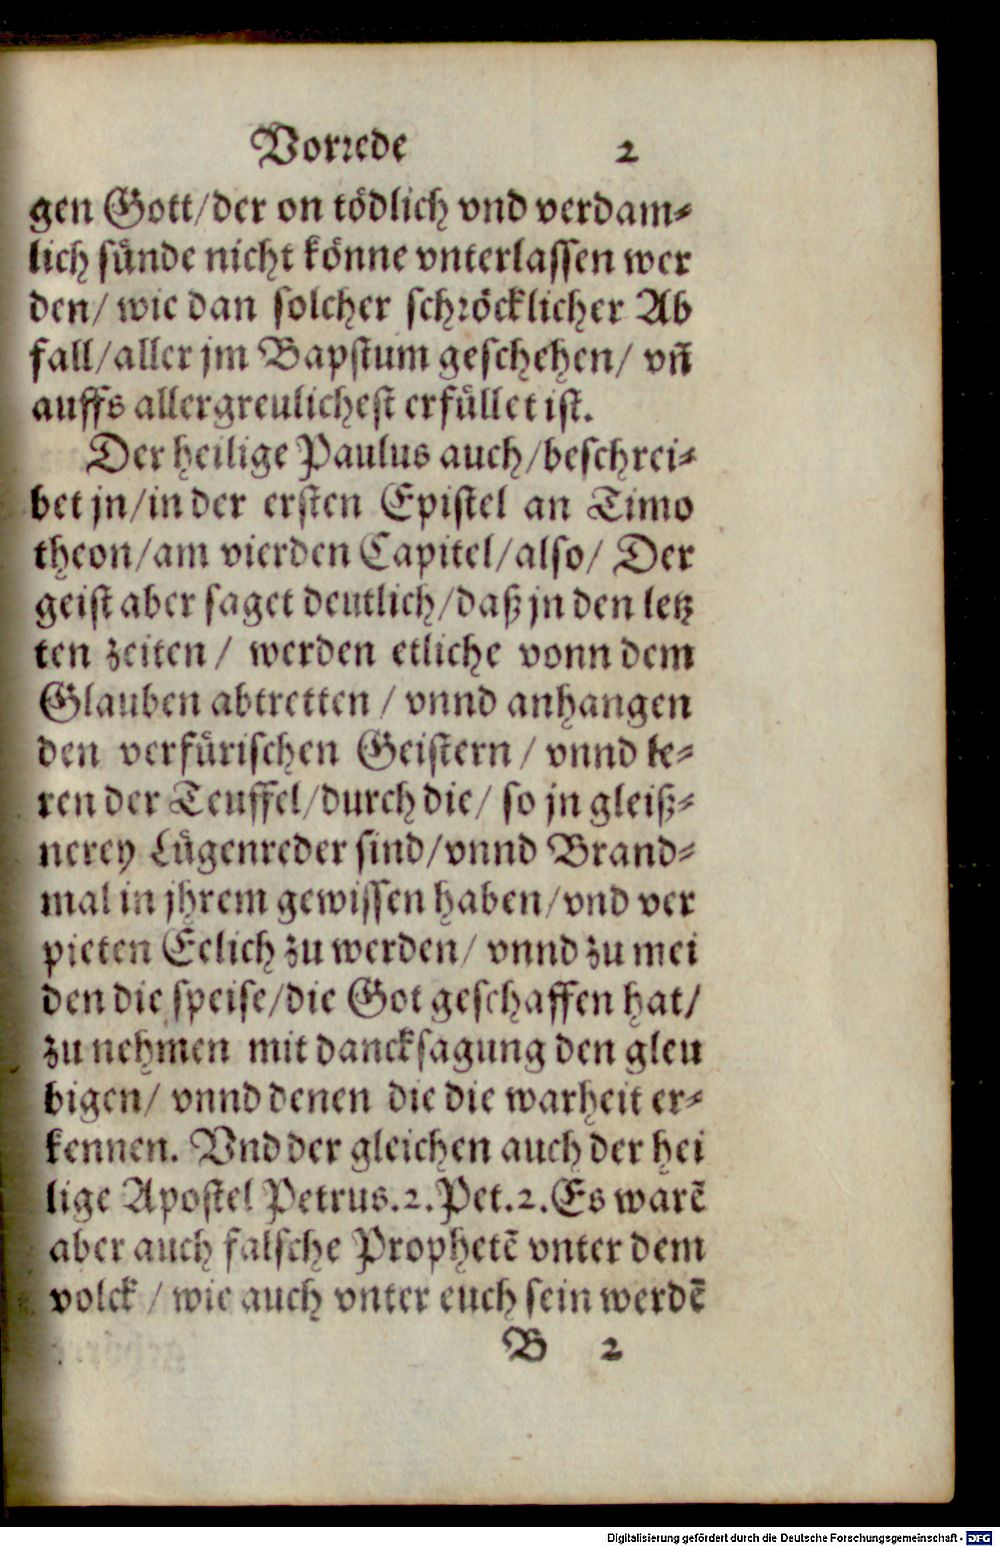 Vorrede 2
gen Gott/der on tödlich vnd verdam⸗
lich sünde nicht könne vnterlassen wer
den/ wie dan solcher schröcklicher Ab
fall/aller jm Bapstum geschehen/ vñ
auffs allergreulichest erfüllet ist.
Der heilige Paulus auch/beschrei⸗
bet jn/in der ersten Epistel an Timo
theon/am vierden Capitel/also/ Der
geist aber saget deutlich/daß jn den letz
ten zeiten/ werden etliche vonn dem
Glauben abtretten / vnnd anhangen
den verfürischen Geistern / vnnd le⸗
ren der Teuffel/durch die/ so jn gleiß⸗
nerey Lügenreder sind/vnnd Brand⸗
mal in jhrem gewissen haben/vnd ver
pieten Eelich zu werden/ vnnd zu mei
den die speise/die Got geschaffen hat/
zu nehmen mit dancksagung den gleu
bigen/ vnnd denen die die warheit er⸗
kennen. Vnd der gleichen auch der hei
lige Apostel Petrus.2.Pet.2.Es warẽ
aber auch falsche Prophetẽ vnter dem
volck / wie auch vnter euch sein werdẽ
B 2
Digitalisierung gefördert durch die Deutsche Forschungsgemeinschaft - DFG